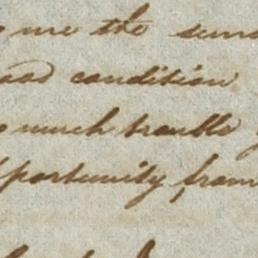 me the
condition
much trouble
portunity from